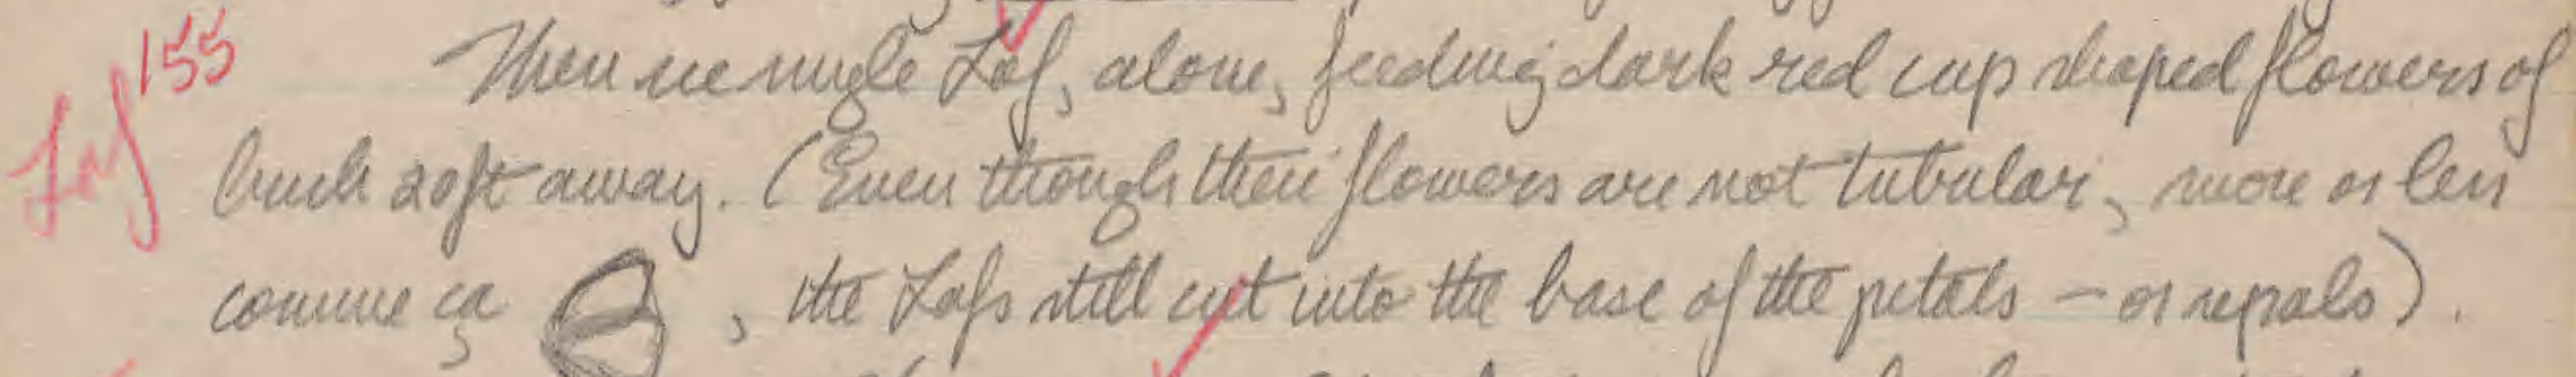 Laf 155
Then see single Laf, alone, feeding dark red cup shaped flowers of
bush 20 ft away. (Even though their flowers are not tubular, more or less
comme ça , the Lafs still cut into the base of the petals — or sepals).